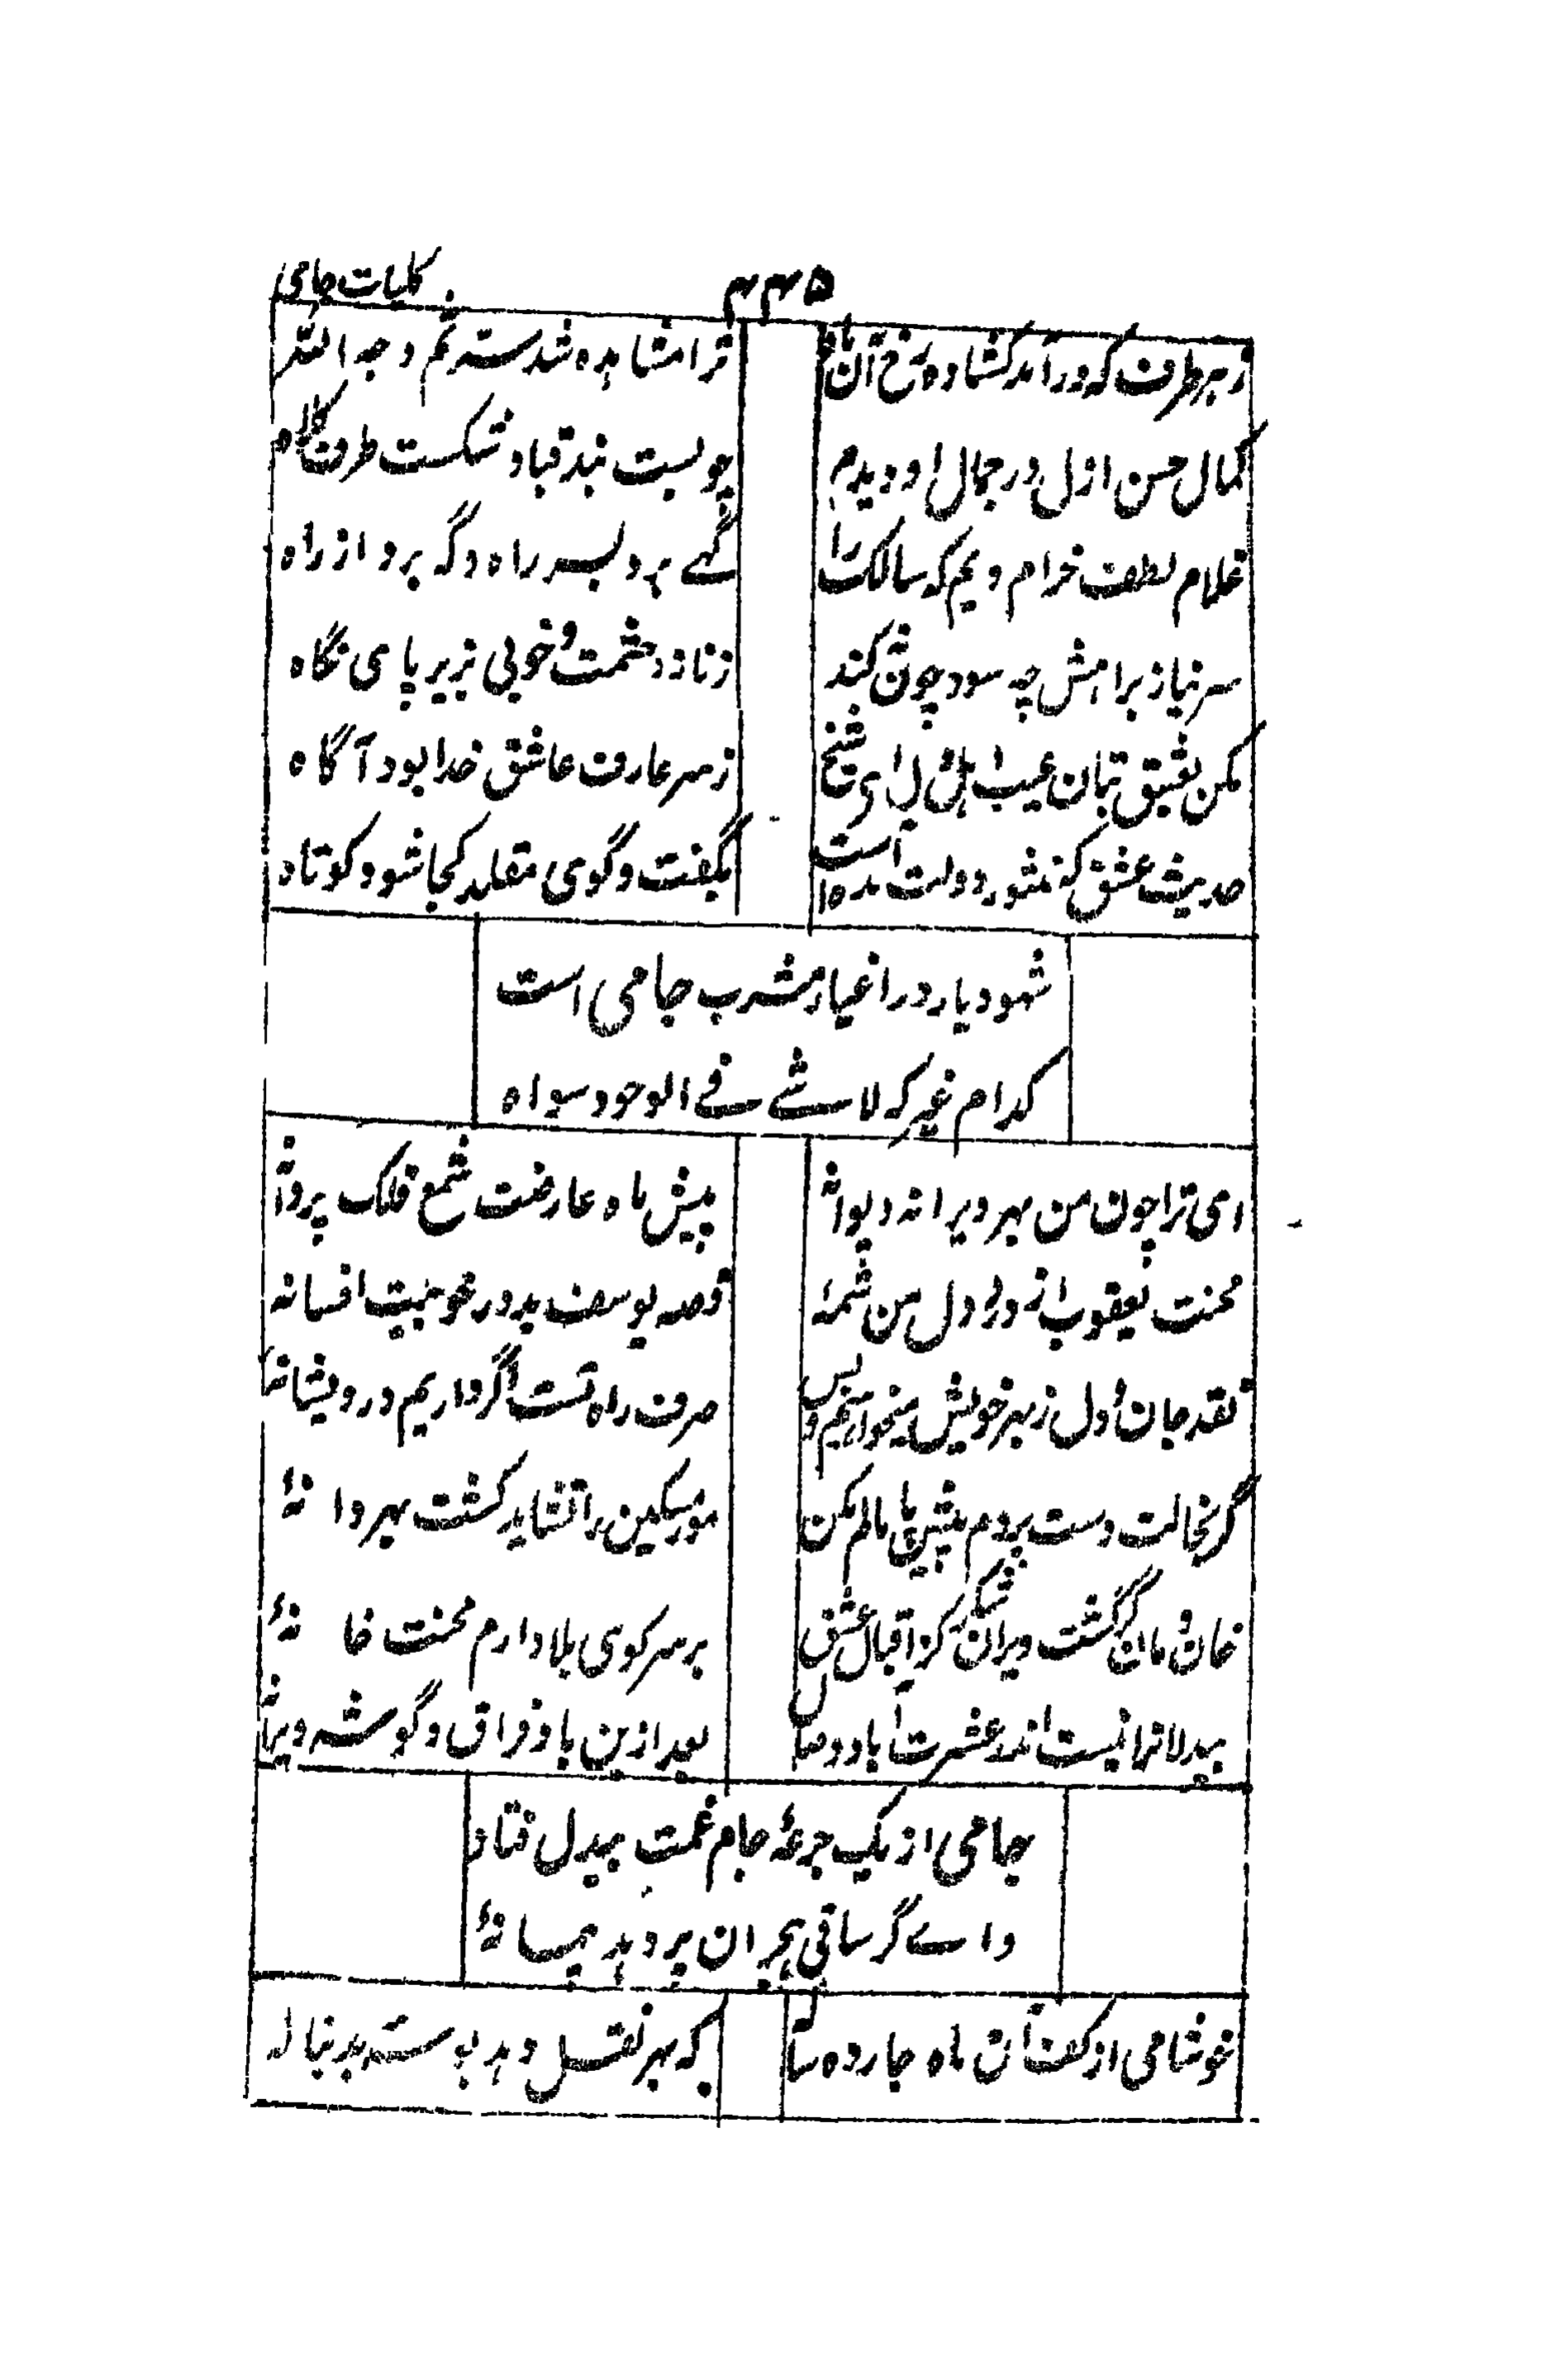 ۴۴۵
کلیات جامی
ز هر طرف که درآمد کشاده رخ آن ماه
ترا مشاهده شد سر ثم وجه الله
کمال حسن ازل در جمال او دیدم
چو بست بند قبا و شکست طرف کلاه
غلام لطف خرام ویم که سالک را
گهے برد بسر راه و گه برد از راه
سر نیاز براهش چه سود چون نکند
ز ناز و حشمت و خوبی بزیر پای نگاه
مکن بعشق بتان عیب اهل دل ای شیخ
ز سر عارف عاشق خدا بود آگاه
حدیث عشق که منشور دولت است
بگفت و گوی مقلد کجا شود کوتاه
شهود یار در اغیار مشرب جامی است
کدام غیر که لا شے فے الوجود سواه
ای ترا چون من بهر ویرانه دیوانۀ
پیش ماه عارضت شمع فلک پروانۀ
محنت یعقوب از درد دل من شمۀ
قصه یوسف بدور خوبیت افسانه
نقد جان و دل ز بهر خویش میخواهیم و بس
صرف راه تست اگر داریم درویشانۀ
گر بخالت دست بردم پیش پا مالم مکن
مور مسکین را نشاید کشت بهر دانۀ
خان و مان گر گشت ویران شکر کز اقبال عشق
بر سر کوی بلا دارم محنت خانۀ
بیدلانرا نیست اندر عشرت آباد وصال
بعد ازین باد فراق و گوشه ویرانۀ
جامی از یک جرعۀ جام غمت بیدل فتاد
واے گر ساقی هجران پر دهد پیمانۀ
خوشا می از کف آن ماه چارده ساله
که بهر نقل دهد بوسه بدنباله